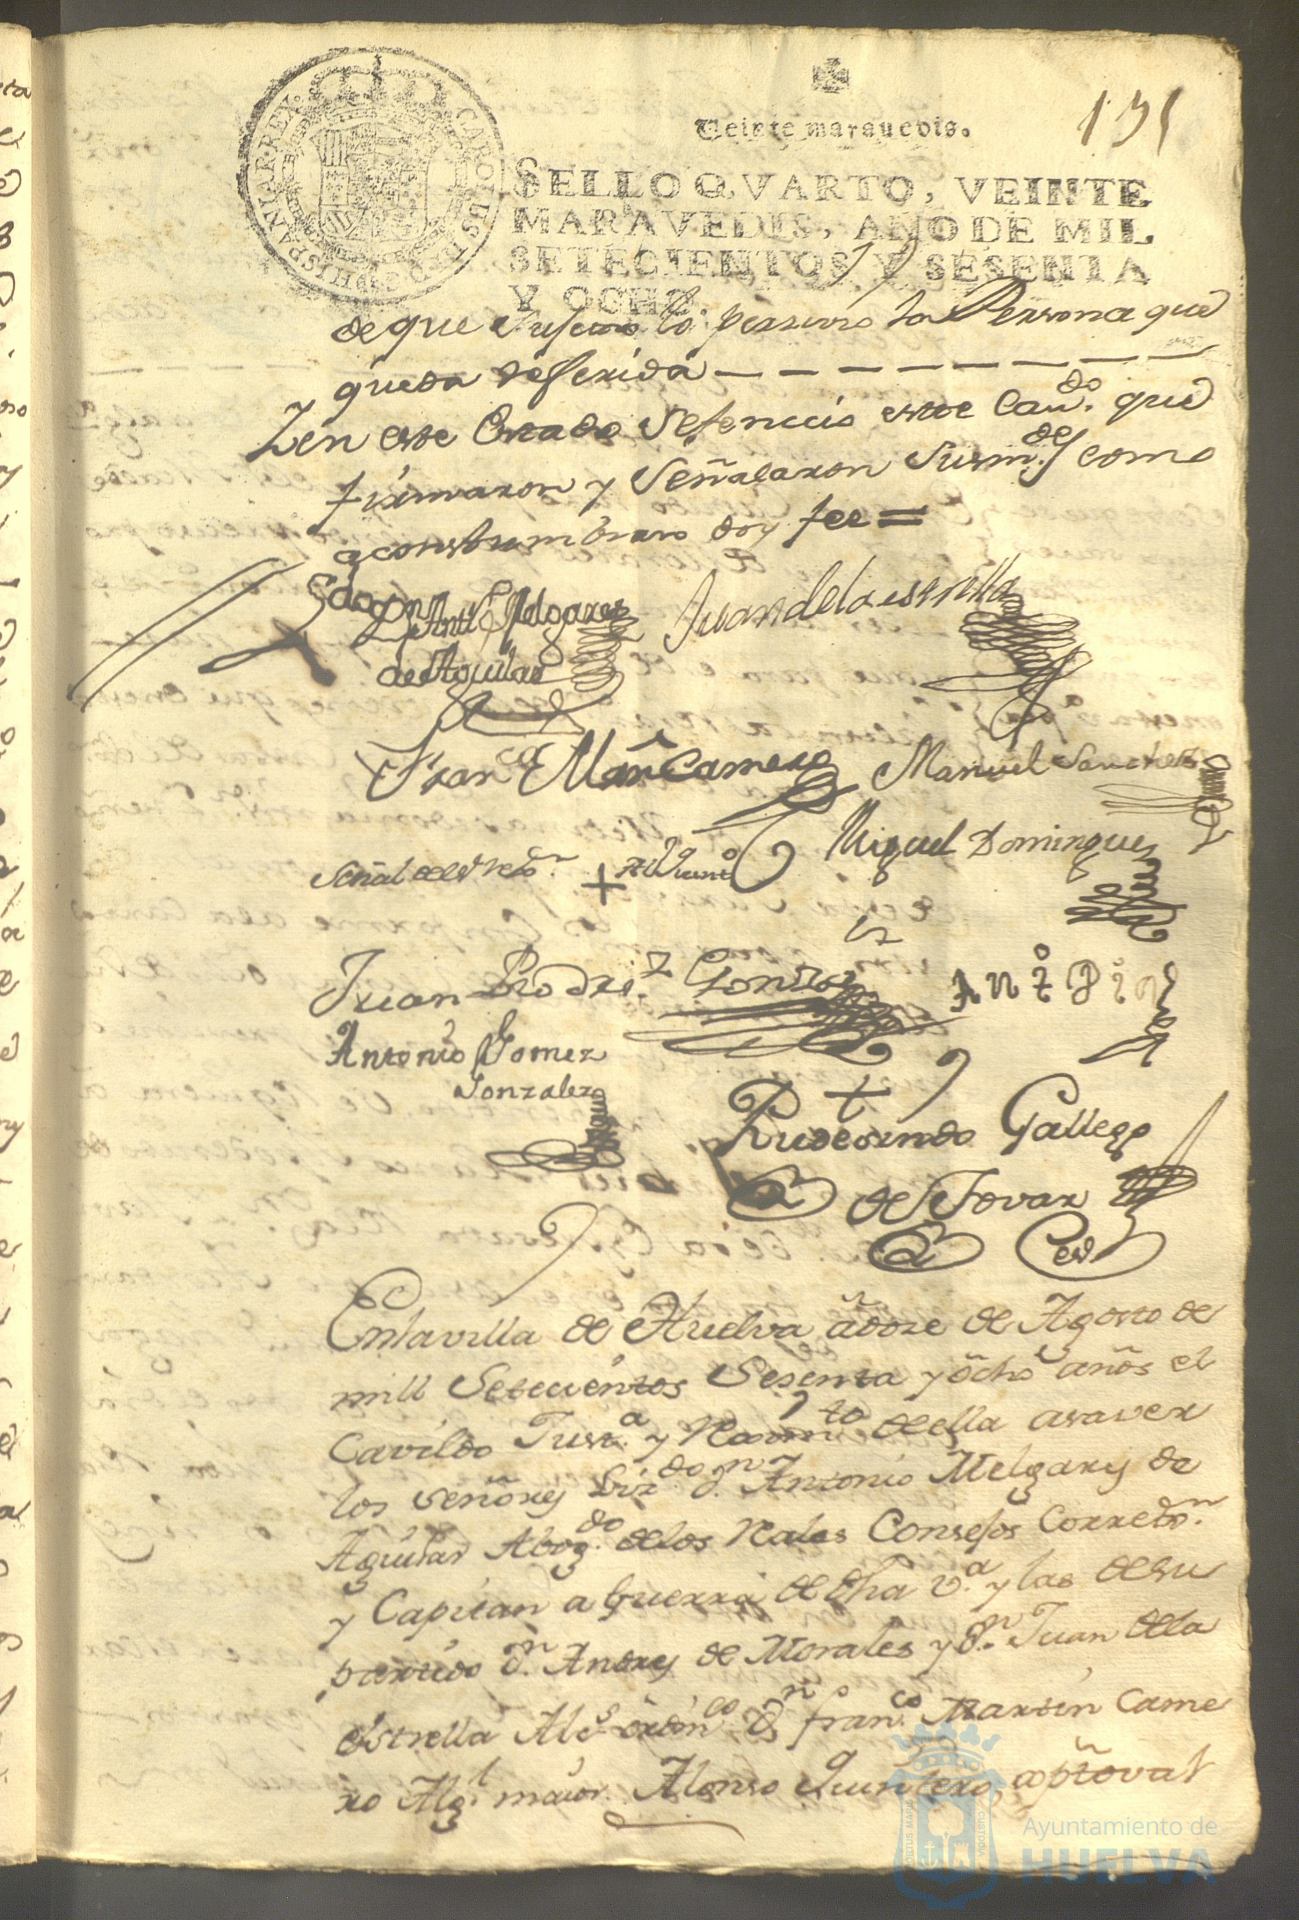 Veinte maravedis.
131
CAROLUS III D G HISPANIAR REX
SELLO QVARTO, VEINTE
MARAVEDIS, AÑO DE MIL
SETECIENTOS Y SESENTA
Y OCHO.
de que lo Persona que
queda referida
Y en este Estado se fenecio este Cavdo. que
firmaron y Señalaron Susmdes como
acostumbraro doy fee =
Antt Melgarexo
de Aguilar
Juan de la estrella
Franco Marn Camero
Manuel Sanchez
Miguel Dominguez
Señal del Rexor. + Alo Quinto
Juan Rodriz Gonzlez
Anto Pin
Antonio Gomez
Gonzalez
Rudesindo Gallego
de Tovar
En la villa de Huelva a doze de Agosto de
mill Setecientos Sesenta y ocho años el
Cavildo Justa y Rexmto della asaver
los Señores Lizdo dn Antonio Melgarej de
Aguilar Abogdo de los Rales Consejos Corregor
y Capitan a Guerra de dha va y las de su
partido dn Andres de Morales y dn Juan de la
estrella Ales ordinos Dn franco Martin Came
ro Algl maior Alonso Quintero,
Ayuntamiento de
HUELVA